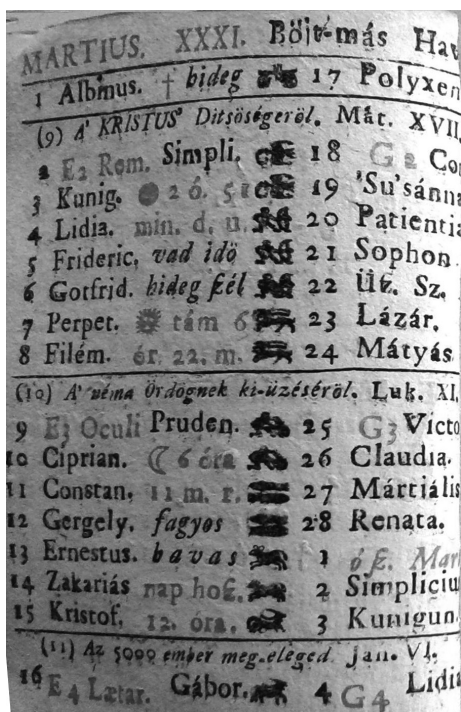 MARTIUS. XXXI. Böjt-más Hav
1 Albinus. † hideg 17 Polyxen
(9) A' KRISTUS' Ditsöségeröl. Mát. XVII.
2 E2 Rem. Simpli. 18 G2 Con
3 Kunig. 2 ó. 51 19 'Su'sánna
4 Lidia. min. d. u. 20 Patientia
5 Frideric. vad idö 21 Sophon
6 Gotfrid. hideg ſzél 22 Üſz. Sz.
7 Perpet. tám 6 23 Lázár.
8 Filém. ór. 22. m. 24 Mátyás
(10) A' néma Ördögnek ki-üzéséröl. Luk. XI.
9 E3 Oculi Pruden. 25 G3 Victo
10 Ciprian. ☾ 6 óra 26 Claudia.
11 Constan. 11 m. r. 27 Mártiális
12 Gergely. fagyos 28 Renata.
13 Ernestus. havas 1 ó ſz. Mar
14 Zakariás nap hoſz. 2 Simpliciu
15 Kristof. 12. óra. 3 Kunigun
(11) Az 5000 ember meg-eleged Jan. VI.
16 E4 Lætar. Gábor. 4 G4 Lidia